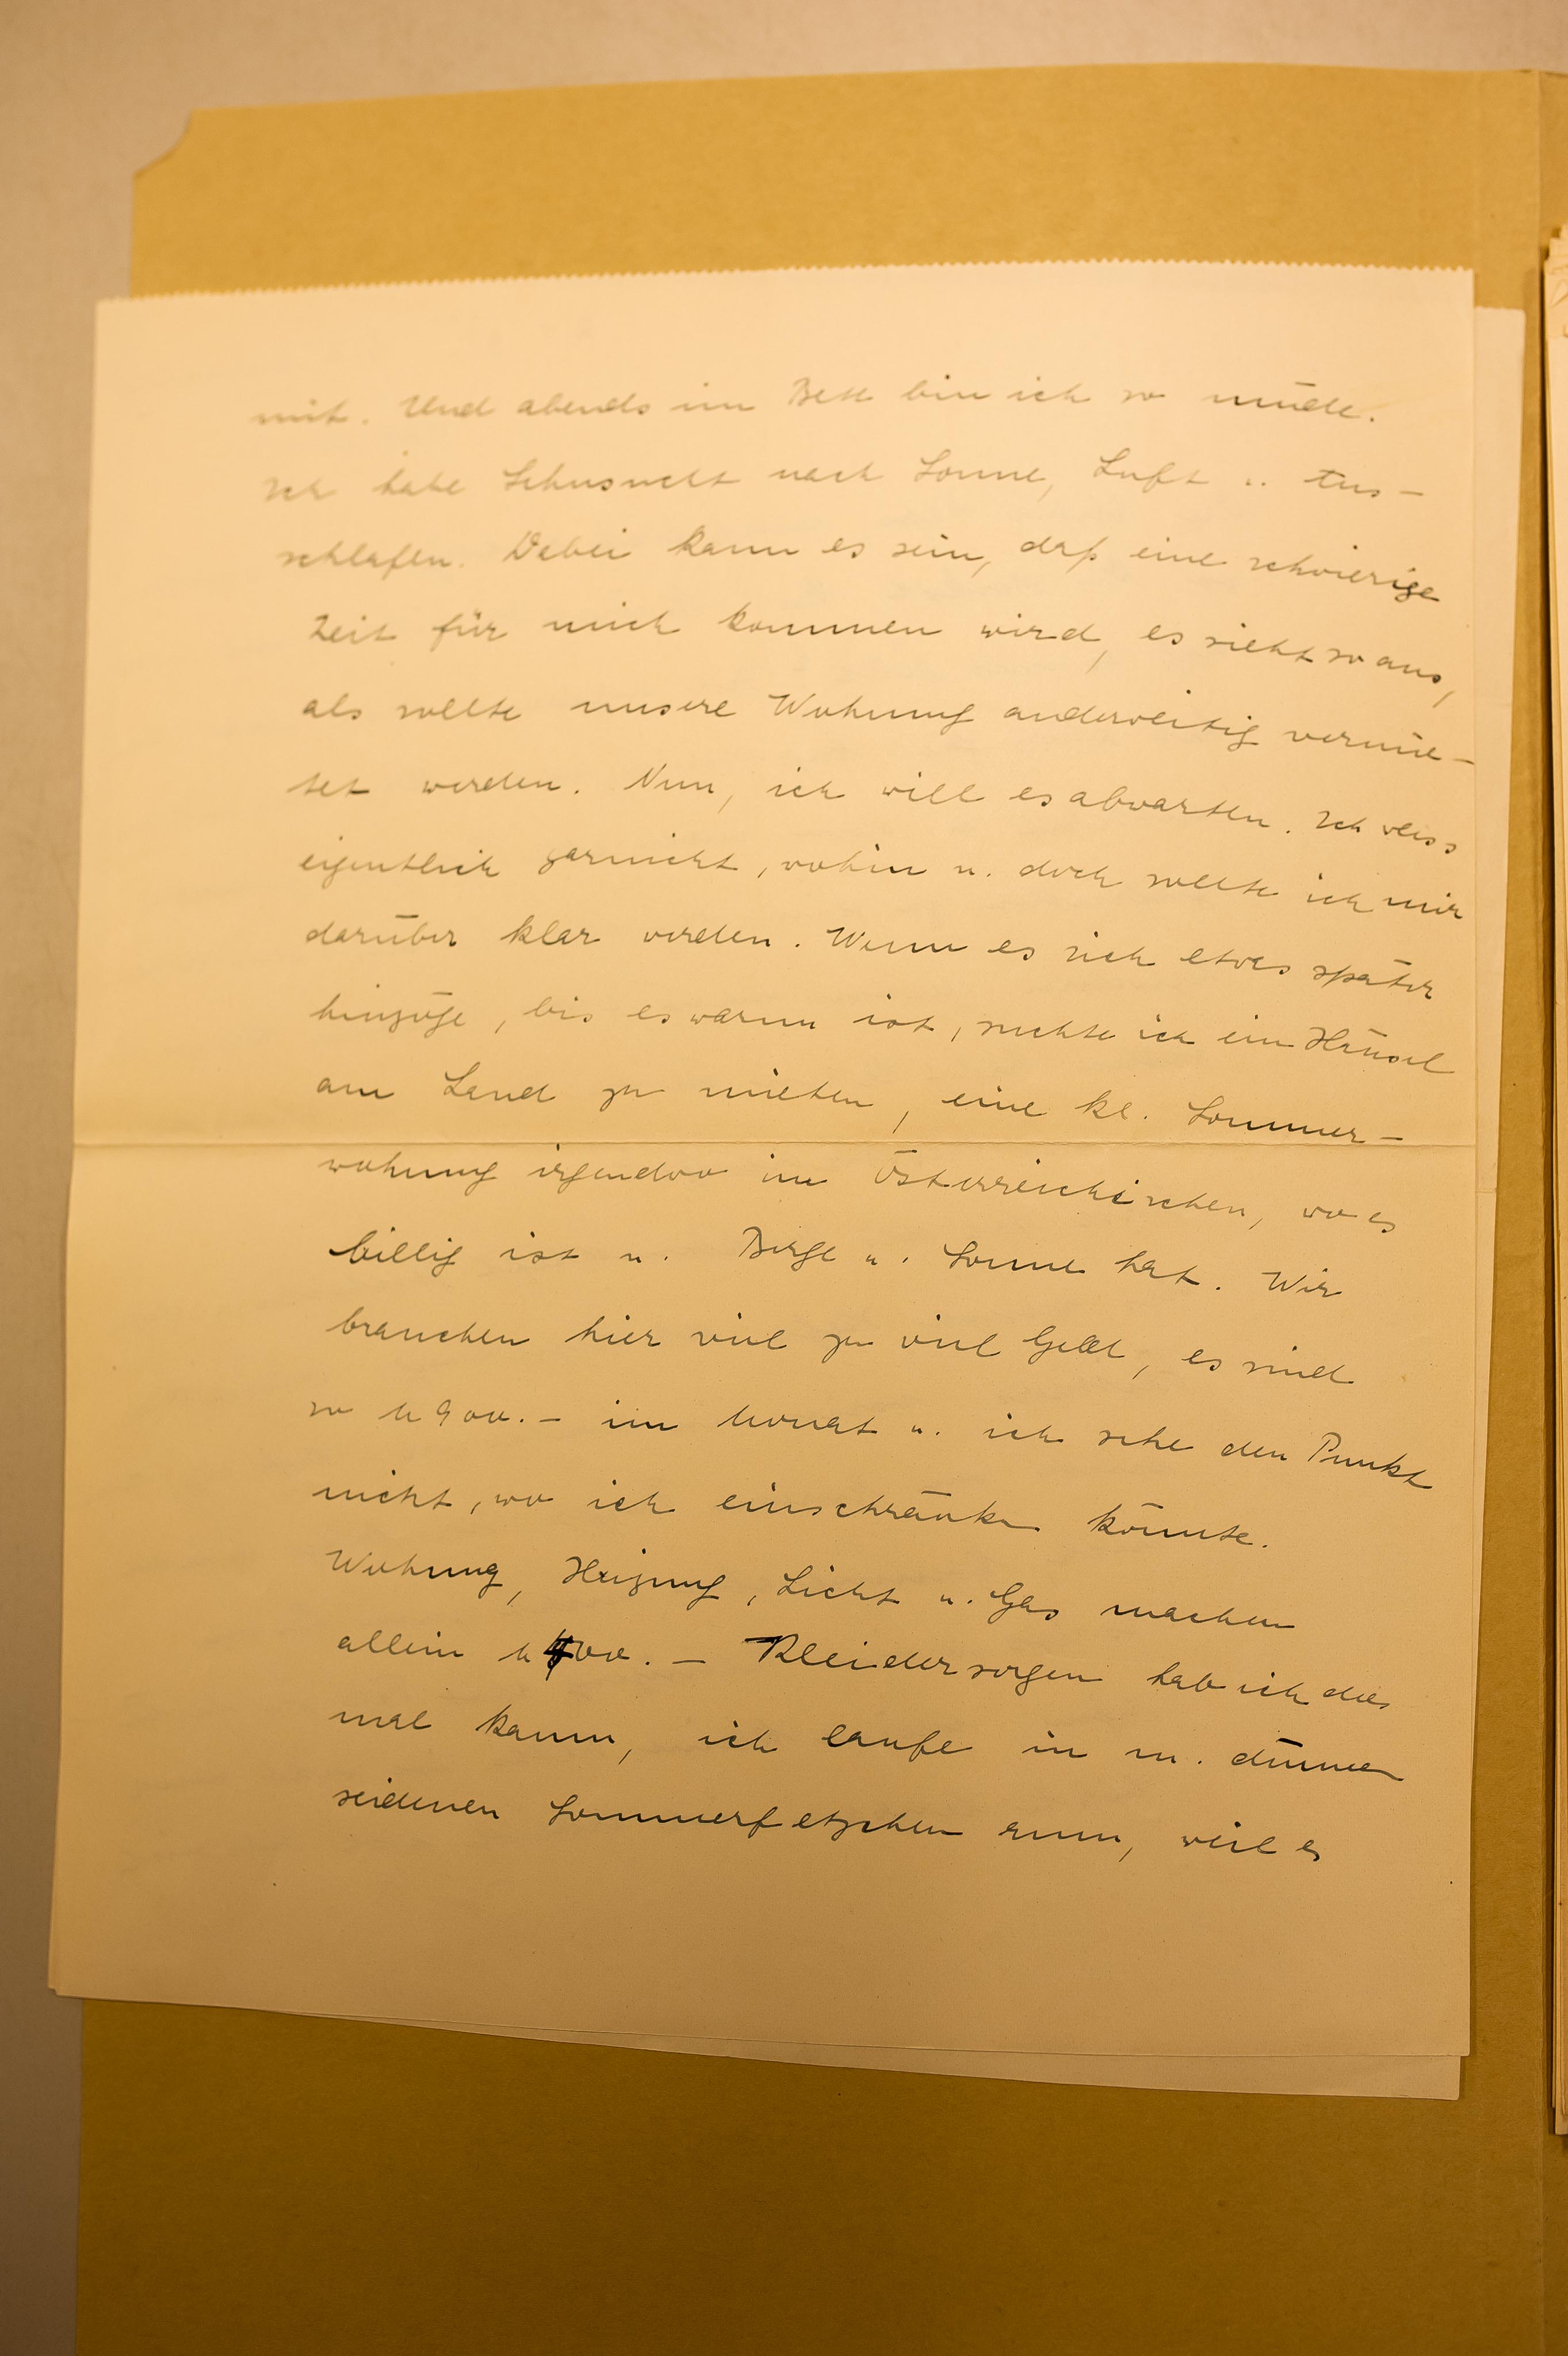 mit. Und abends im Bett bin ich so müde.
Ich habe Sehnsucht nach Sonne, Luft u. Aus-
schlafen. Dabei kann es sein, daß eine schwierige
Zeit für mich kommen wird, es sieht so aus,
als sollte unsere Wohnung anderweitig vermie-
tet werden. Nun, ich will es abwarten. Ich weiss
eigentlich garnicht, wohin u. doch sollte ich mir
darüber klar werden. Wenn es sich etwas später
hinzöge, bis es warm ist, suchte ich ein Häusel
am Land zu mieten, eine kl. Sommer-
wohnung irgendwo im Österreichischen, wo es
billig ist u. Berge u. Sonne hat. Wir
brauchen hier viel zu viel Geld, es sind
so M 900.- im Monat u. ich sehe den Punkt
nicht, wo ich einschränken könnte.
Wohnung, Heizung, Licht u. Gas machen
allein M 400.- Kleidersorgen hab ich dies
mal kaum, ich laufe in m. dünnen
seidenen Sommerfetzchen rum, weil es